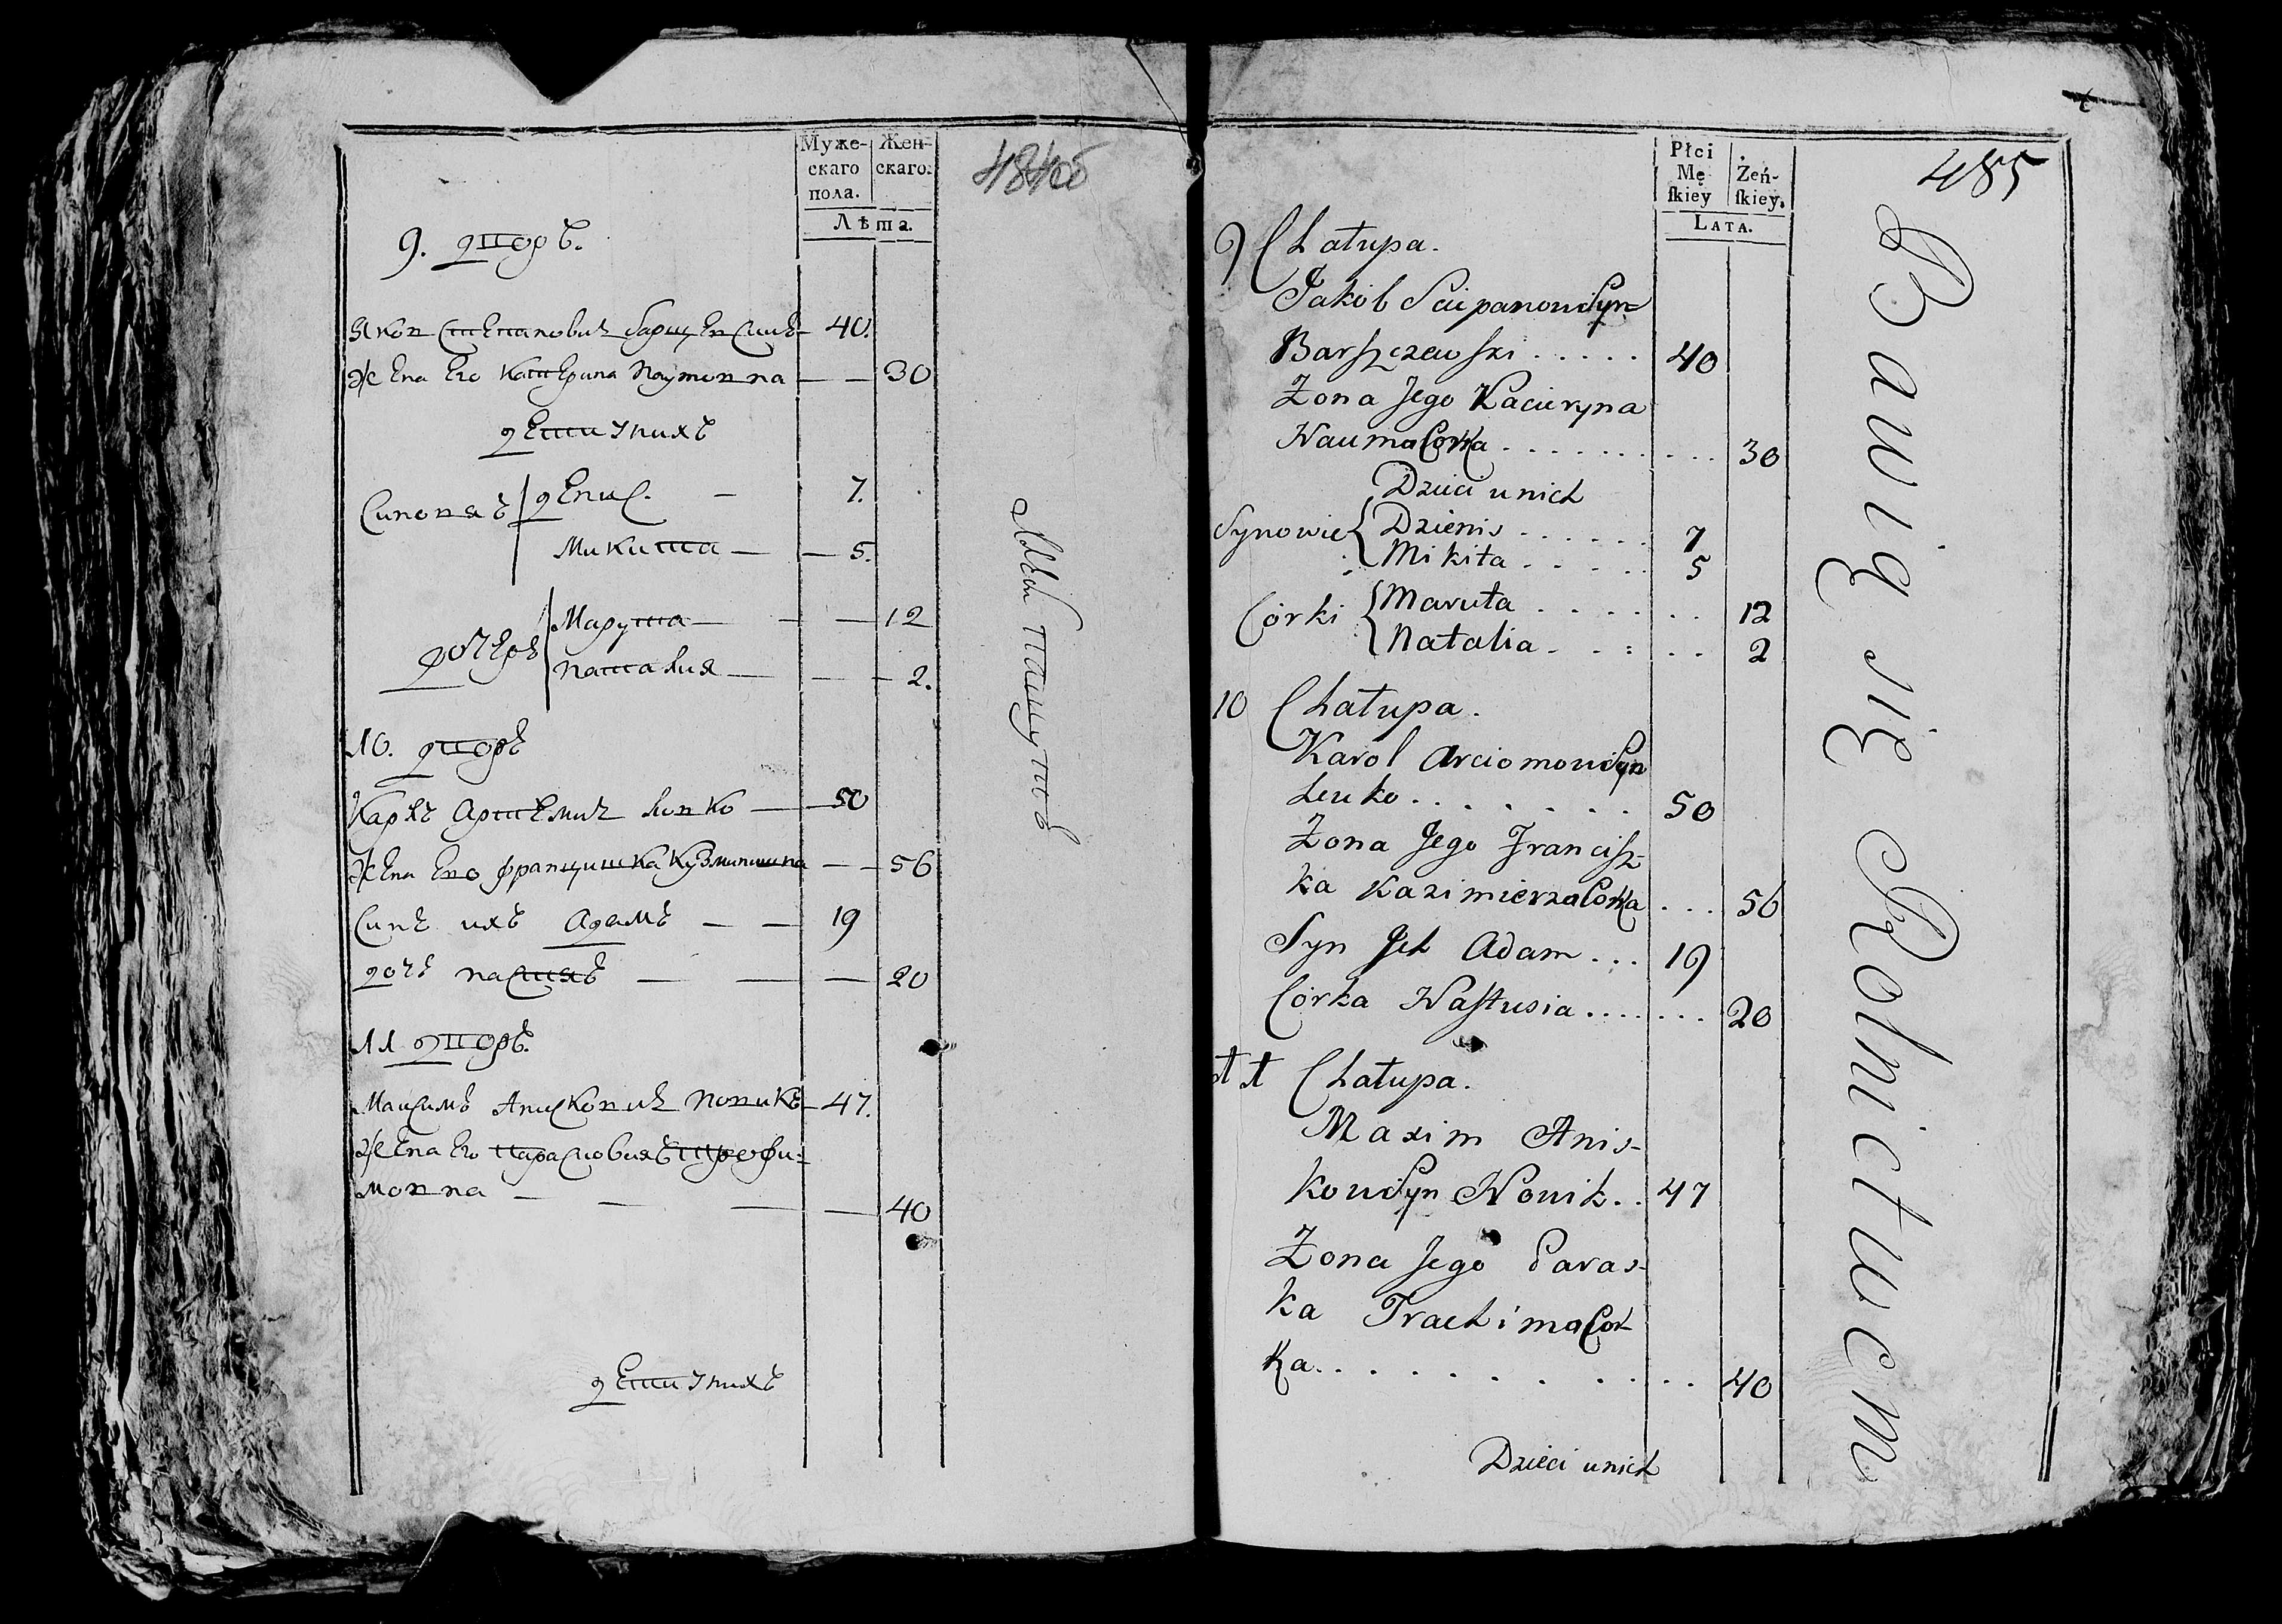 Муже-
скаго
пола.
Жен-
скаго.
Лѣта.
484об
9. дворъ.
Яков Степановичъ Барщевский 40.
Жена его Катерина Наумовна 30
дети у нихъ
Синовя денис. 7.
Микита 5.
дочерѣ Марута 12
наталия 2.
10. дворъ
Карлъ Артемич левко 50
Жена ево францишка Кузминишна 56
Синъ ихъ адамъ 19
дочъ 20
11 дворъ.
Максимъ Анисковичъ новикъ 47.
Жена его
мовна 40
дети у нихъ
Płci
Mę
ſkiey
Żeń-
ſkiey.
LATA.
485
9 Chałupa.
Jakób Sciepanow Syn
Barszczewski..... 40
Żona Jego Kacieryna
Nauma Corka....... 30
Dzieci u nich
Synowie { Dzienis...... 7
Mikita..... 5
Córki { Maruta...... 12
Natalia...... 2
10 Chałupa.
Karol Arciomow Syn
Lewko....... 50
Żona Jego Francisz-
ka Kazimierza Corka... 56
Syn Jch Adam... 19
Córka Nastusia....... 20
11 Chałupa.
Maxim Anis-
kow Syn Nowik.. 47
Żona Jego Paras-
ka Trachima Cor
ka.......... 40
Dzieci u nich
Bawią się Rolnictwem